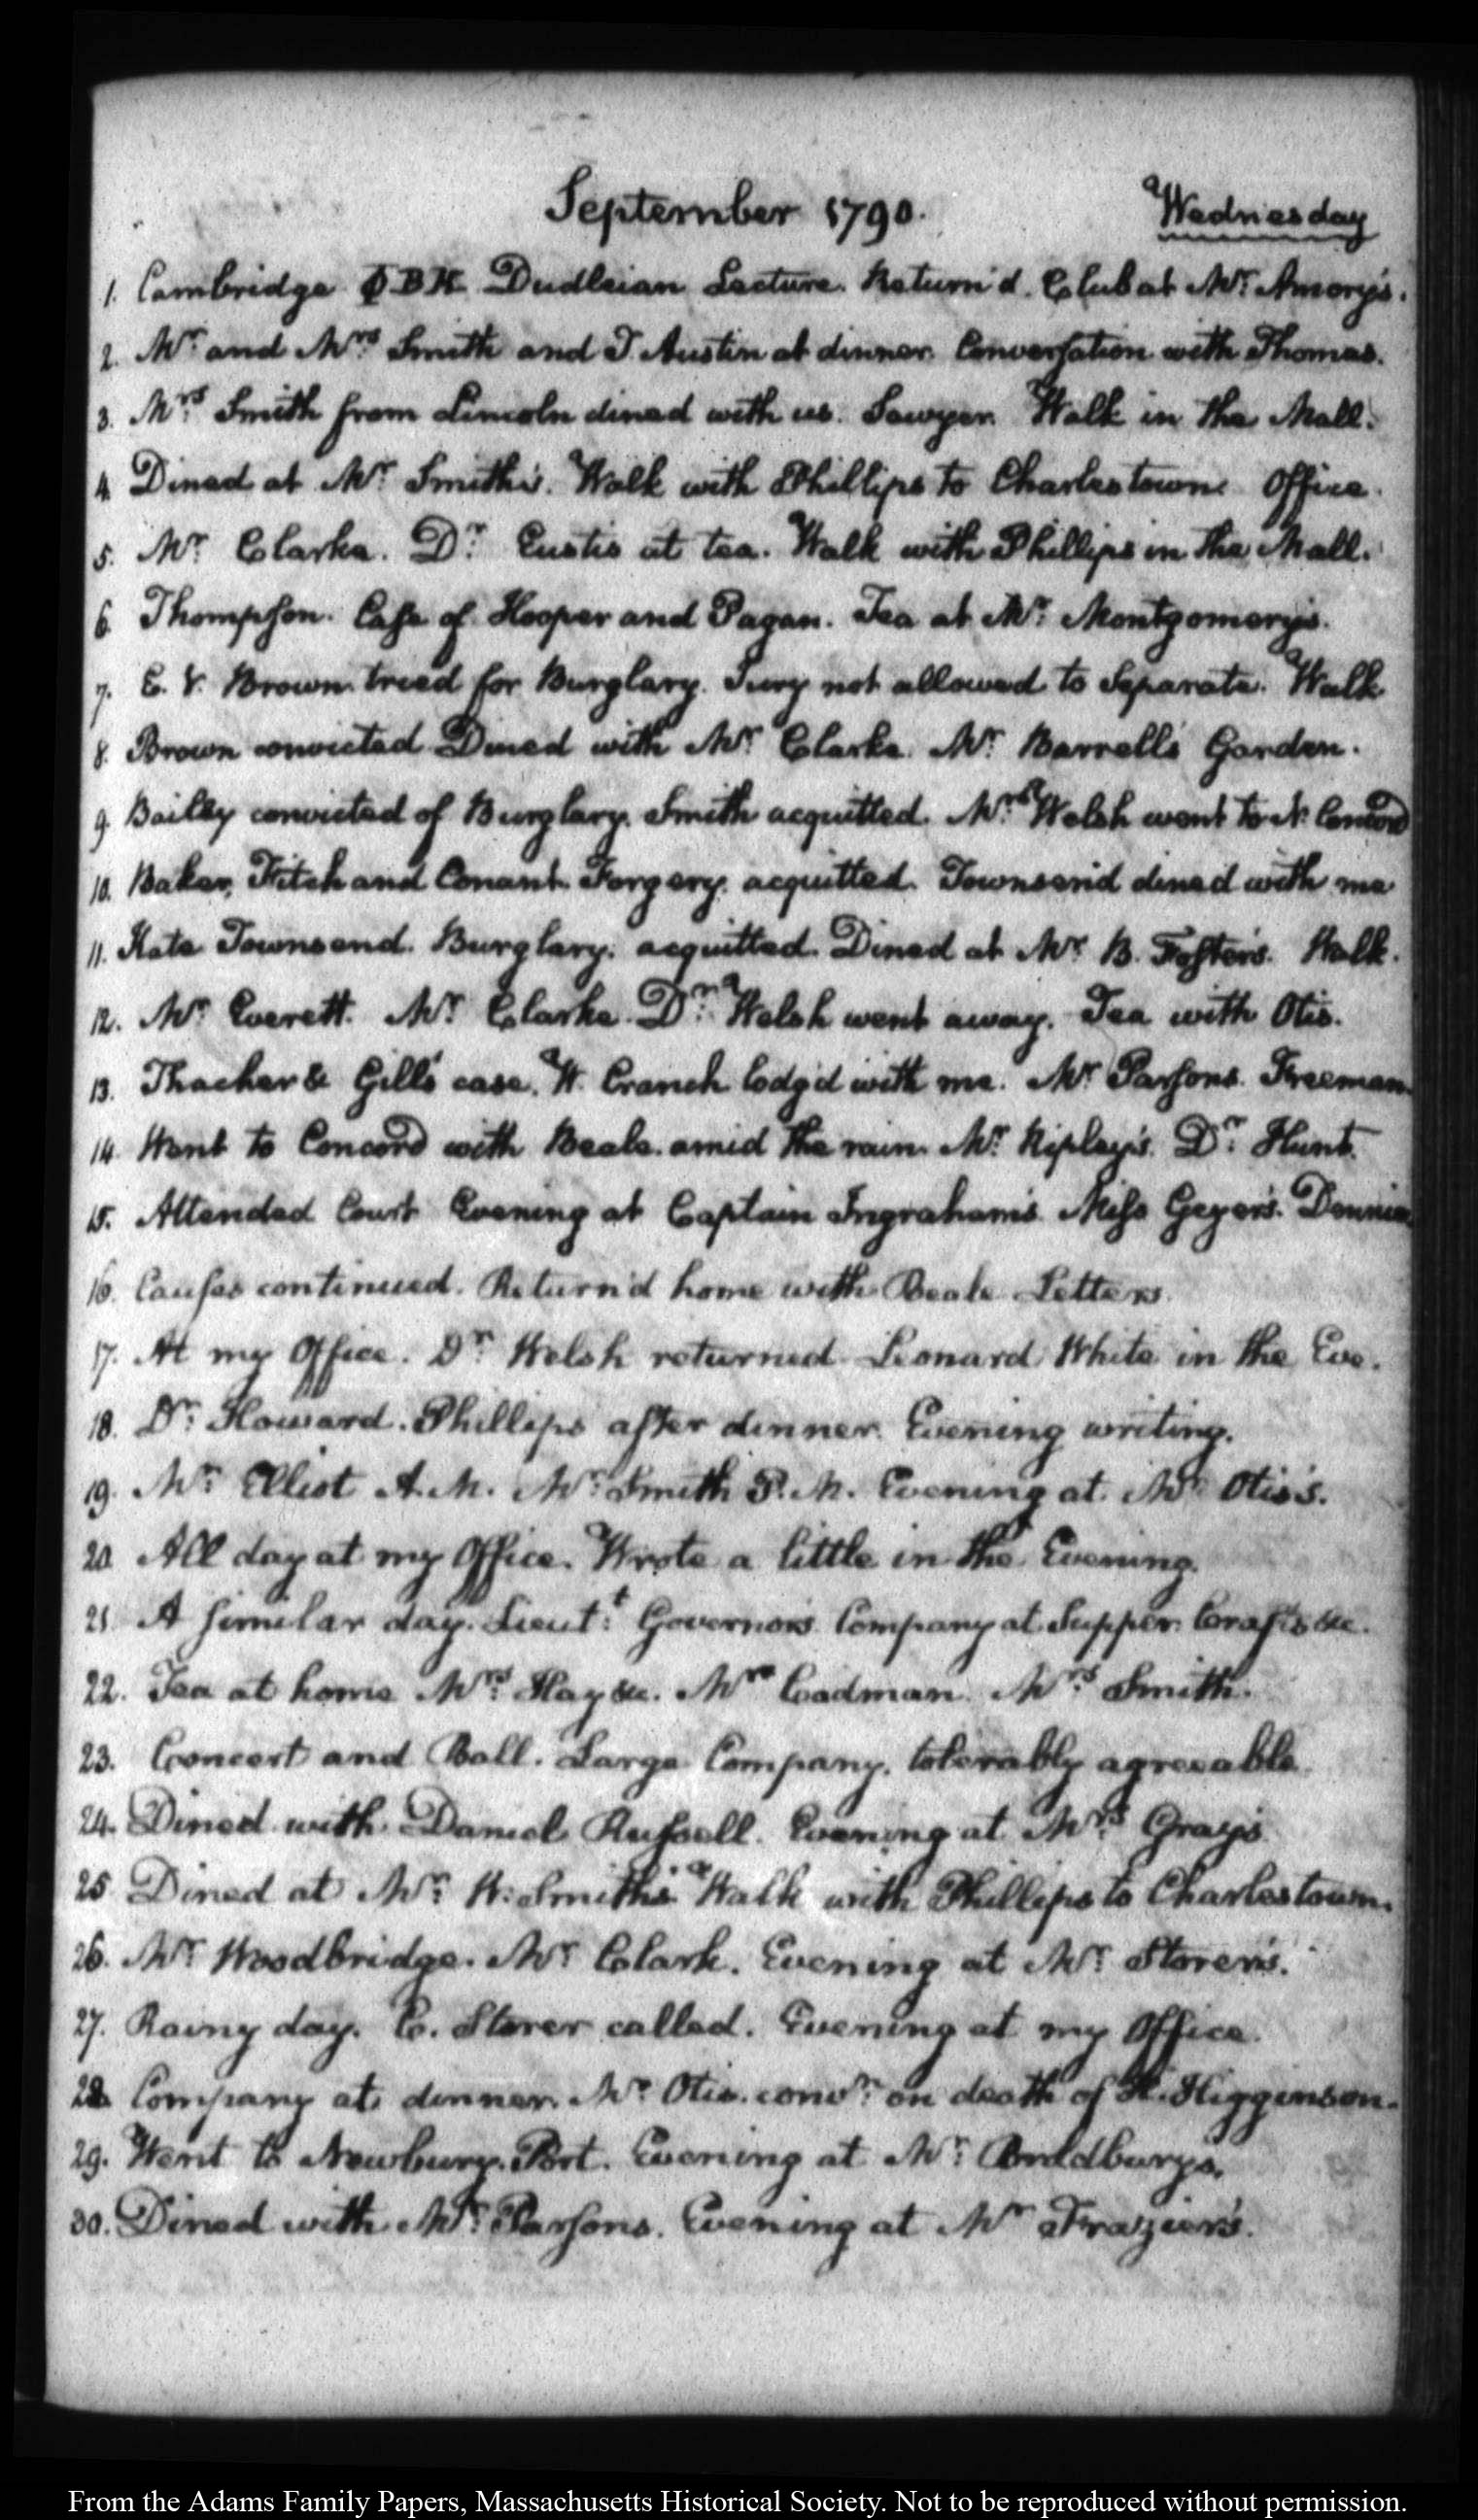 September 1790. Wednesday
1. Cambridge ΦBK Dudleian Lecture. Return'd. Club at Mr. Amory's.
2. Mr. and Mrs. Smith and J. Austin at dinner. Conversation with Thomas.
3. Mrs. Smith from Lincoln dined with us. Sawyer. Walk in the Mall.
4. Dined at Mr. Smith's. Walk with Phillips to Charlestown. Office.
5. Mr. Clarke. Dr. Eustis at tea. Walk with Phillips in the Mall.
6. Thompson. Case of Hooper and Pagan. Tea at Mr. Montgomery's.
7. Brown tried for Burglary. Jury not allowed to Separate. Walk
8. Brown convicted Dined with Mr. Clarke. Mr. Barrell's Garden.
9. Bailey convicted of Burglary. Smith acquitted. Mrs. Welsh went to N. Concord
10. Baker, Fitch and Conant. Forgery. acquitted. Townsend dined with me
11. Kate Townsend. Burglary. acquitted. Dined at Mr. B. Foster's. Walk.
12. Mr. Everett. Mr. Clarke. Dr. Welsh went away. Tea with Otis.
13. Thacher & Gill's case. W. Cranch lodg'd with me. Mr. Parsons. Freeman.
14. Went to Concord with Beale. amid the rain. Mr. Ripley's. Dr. Hunt.
15. Attended Court Evening at Captain Ingraham's. Miss Geyer's. Dennie
16. Causes continued. Return'd home with Beale. Letters.
17. At my Office. Dr. Welsh returned. Leonard White in the Eve.
18. Dr. Howard. Phillips after dinner. Evening writing.
19. Mr. Elliot A.M. Mr. Smith P.M. Evening at Mr. Otis's.
20. All day at my Office. Wrote a little in the Evening.
21. A similar day. Lieut.t Governor's. Company at Supper. Crafts &c.
22. Tea at home Mrs. Hay &c. Mrs. Cadman. Mrs. Smith.
23. Concert and Ball. Large Company. tolerably agreeable.
24. Dined with Daniel Russell. Evening at Mrs. Gray's
25. Dined at Mr. W. Smith's. Walk with Phillips to Charlestown.
26. Mr. Woodbridge. Mr. Clark. Evening at Mr. Storer's.
27. Rainy day. C. Storer called. Evening at my Office.
28. Company at dinner. Mr. Otis. conv.n on death of H. Higginson.
29. Went to Newbury-Port. Evening at Mr. Bradbury's.
30. Dined with Mr. Parsons. Evening at Mr. Frazier's.
From the Adams Family Papers, Massachusetts Historical Society. Not to be reproduced without permission.